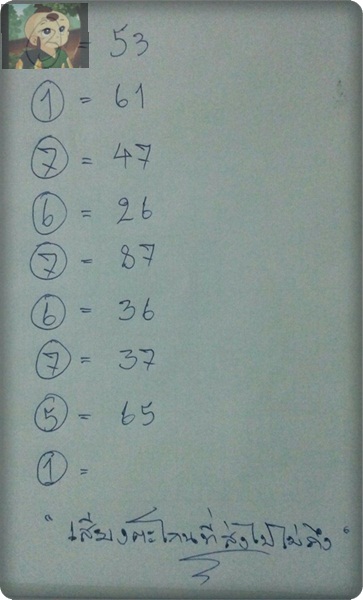 = 53
1 = 61
7 = 47
6 = 26
7 = 87
6 = 36
7 = 37
5 = 65
1 =
"เสียงตะโกนที่ส่งไปไม่ถึง"